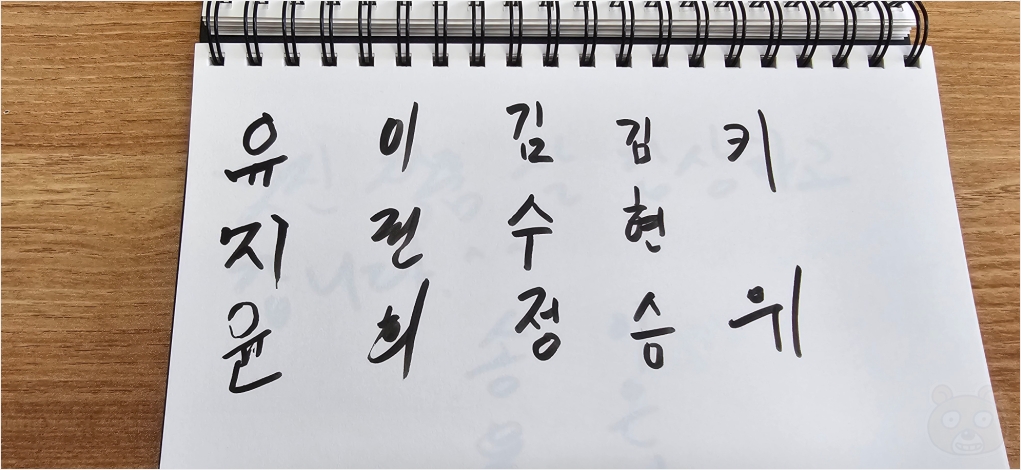 유 이 김 김 키
지 련 수 현
윤 희 정 승 위